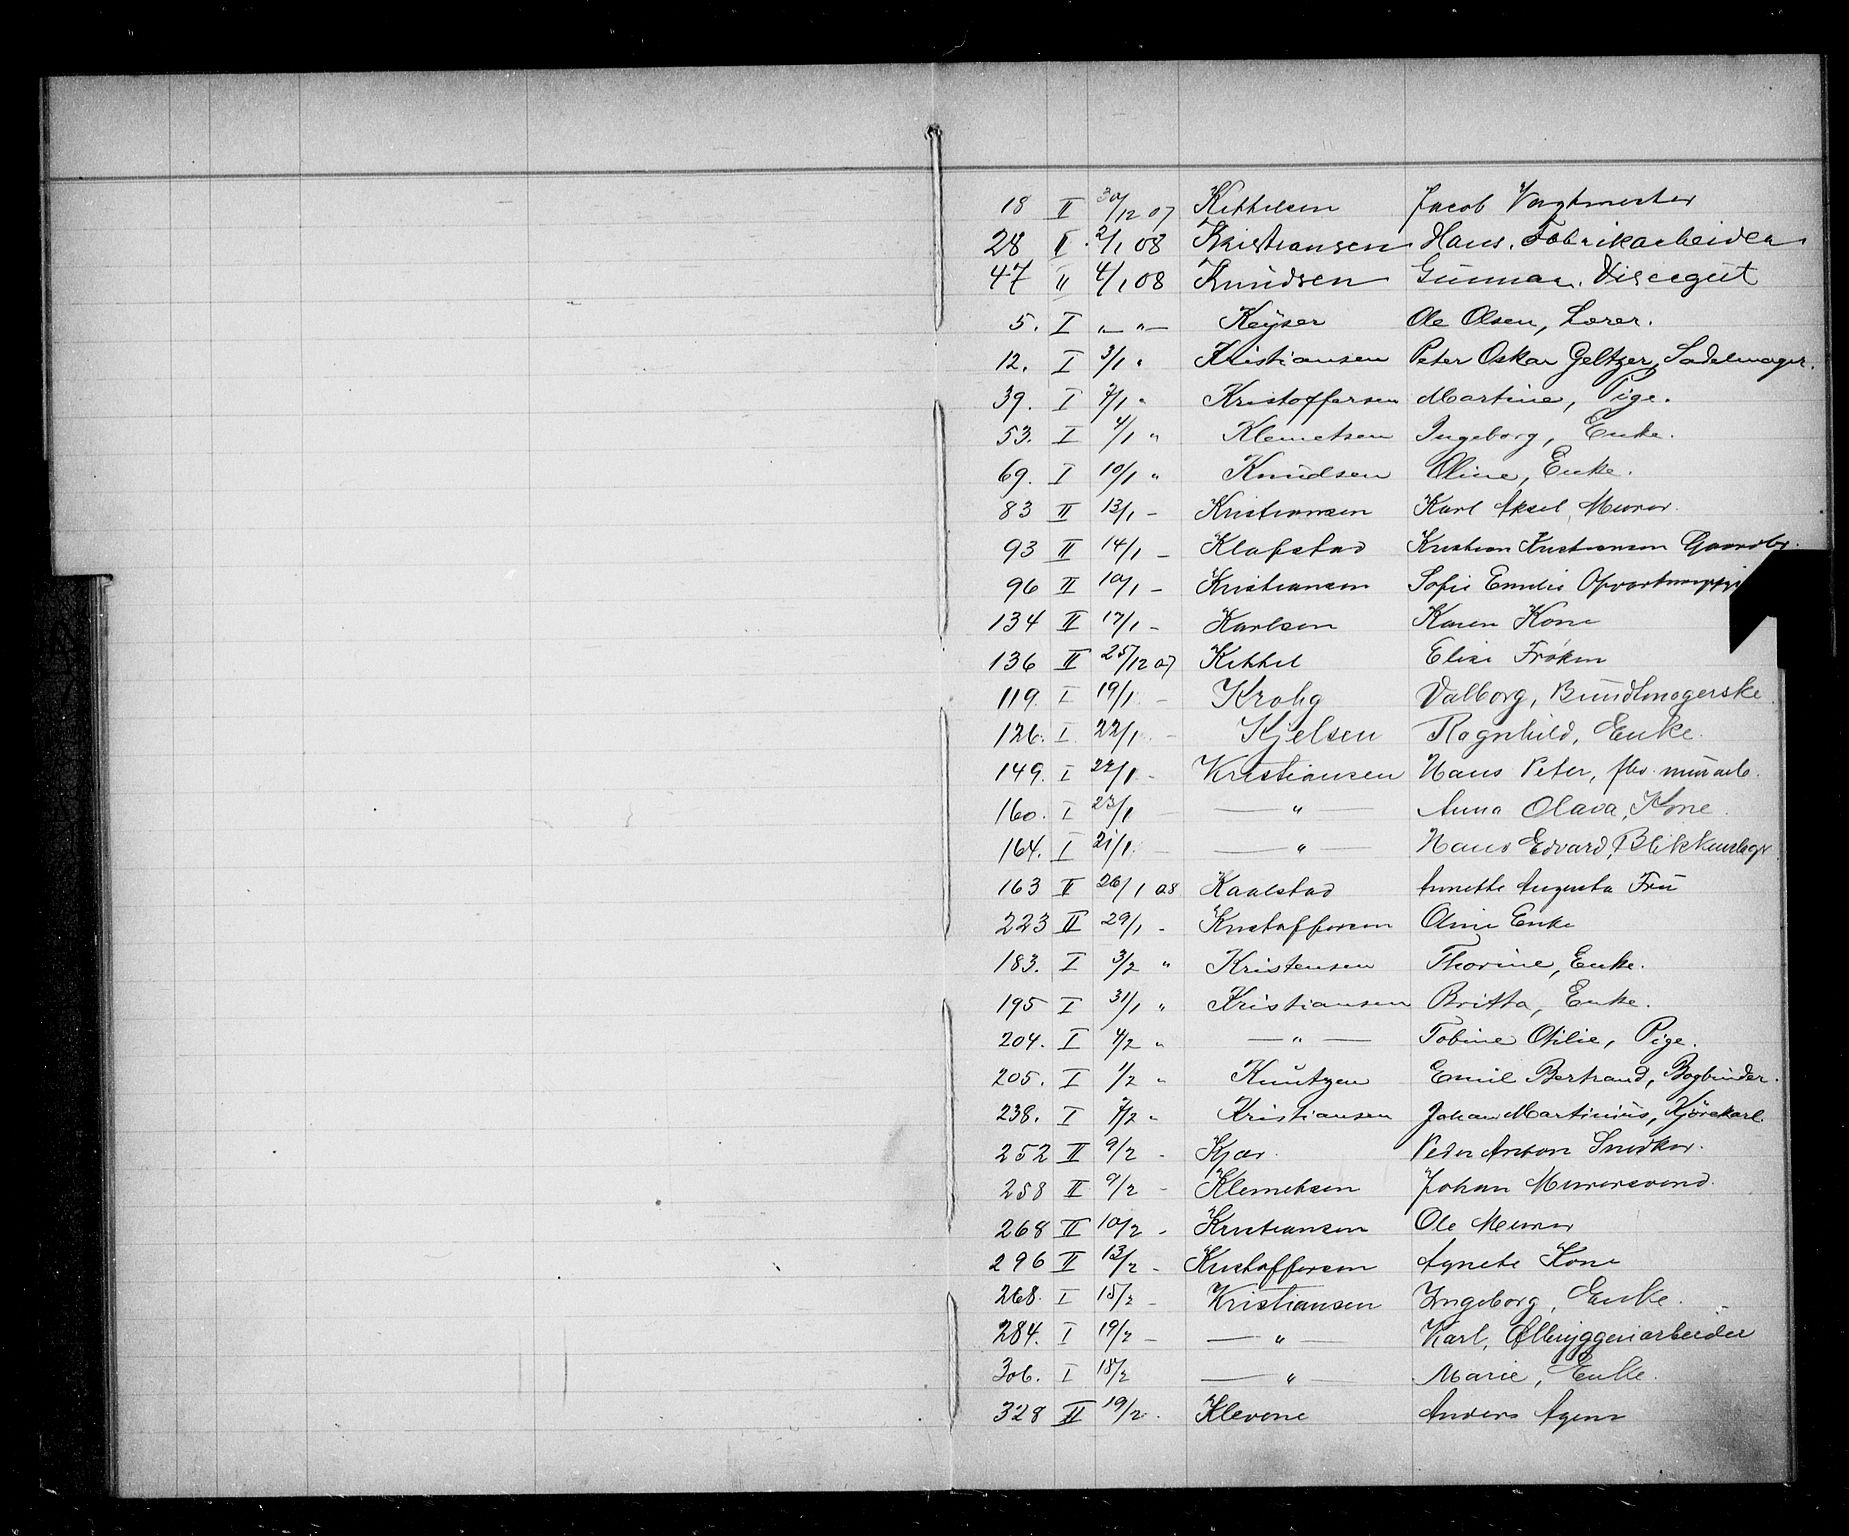 18 II 30/12 07 Kittelsen Jacob Vagtmester
28 II 2/1 08 Kristiansen Hans, Fabrikarbeider
47 II 4/1 08 Knudsen Gunnar, Visergut
5. I „ „ Keyser Ole Olsen, Lærer.
12. I 3/1 „ Kristiansen Peter Oskar Geltzer, Sadelmager.
39. I 7/1 „ Kristoffersen Martine, Pige.
53. I 4/1 „ Klemetsen Ingeborg, Enke.
69. I 10/1 „ Knudsen Oline, Enke.
83 II 13/1 - Kristiansen Karl Aksel, Murer.
93 II 14/1 - Klafstad Kristian Kristiansen Gaardbr.
96 II 10/1 - Kristiansen Sofie Emilie
134 II 17/1 - Karlsen Karen Kone
136 II 25/12 07 Kittel Elise Frøken
119. I 19/1 - Krohg Valborg, Bundtmagerske
126. I 22/1 - Kjelsen Ragnhild, Enke.
149. I 22/1 - Kristiansen Hans Peter, fhv. murarb.
160. I 23/1 - — „ — Anna Olava, Kone.
164. I 21/1 - — „ — Hans Edvard, Blikkenslager
163 II 26/1 08 Kaalstad Annette Augusta Fru
223 II 29/1 - Kristoffersen Oline Enke
183. I 3/2 „ Kristensen Thorine, Enke.
195 I 31/1 „ Kristiansen Britta, Enke.
204. I 4/2 „ — „ — Tobine Otilie, Pige.
205. I 1/2 „ Knutzen Emil Bertrand, Bogbinder.
238. I 7/2 „ Kristiansen Johan Martinius, Kjørekarl.
252 II 9/2 - Kjær. Peder Anton Snedker.
258 II 9/2 - Klemetsen Johan Murersvend.
268 II 10/2 - Kristiansen Ole Murer
296 II 13/2 - Kristoffersen Agnete Kone
268. I 15/2 - Kristiansen Ingeborg, Enke.
284. I 19/2 - — „ — Karl, Ølbryggeriarbeider
306. I 18/2 — „ — Marie, Enke.
328 II 19/2 - Klevene Anders Agent